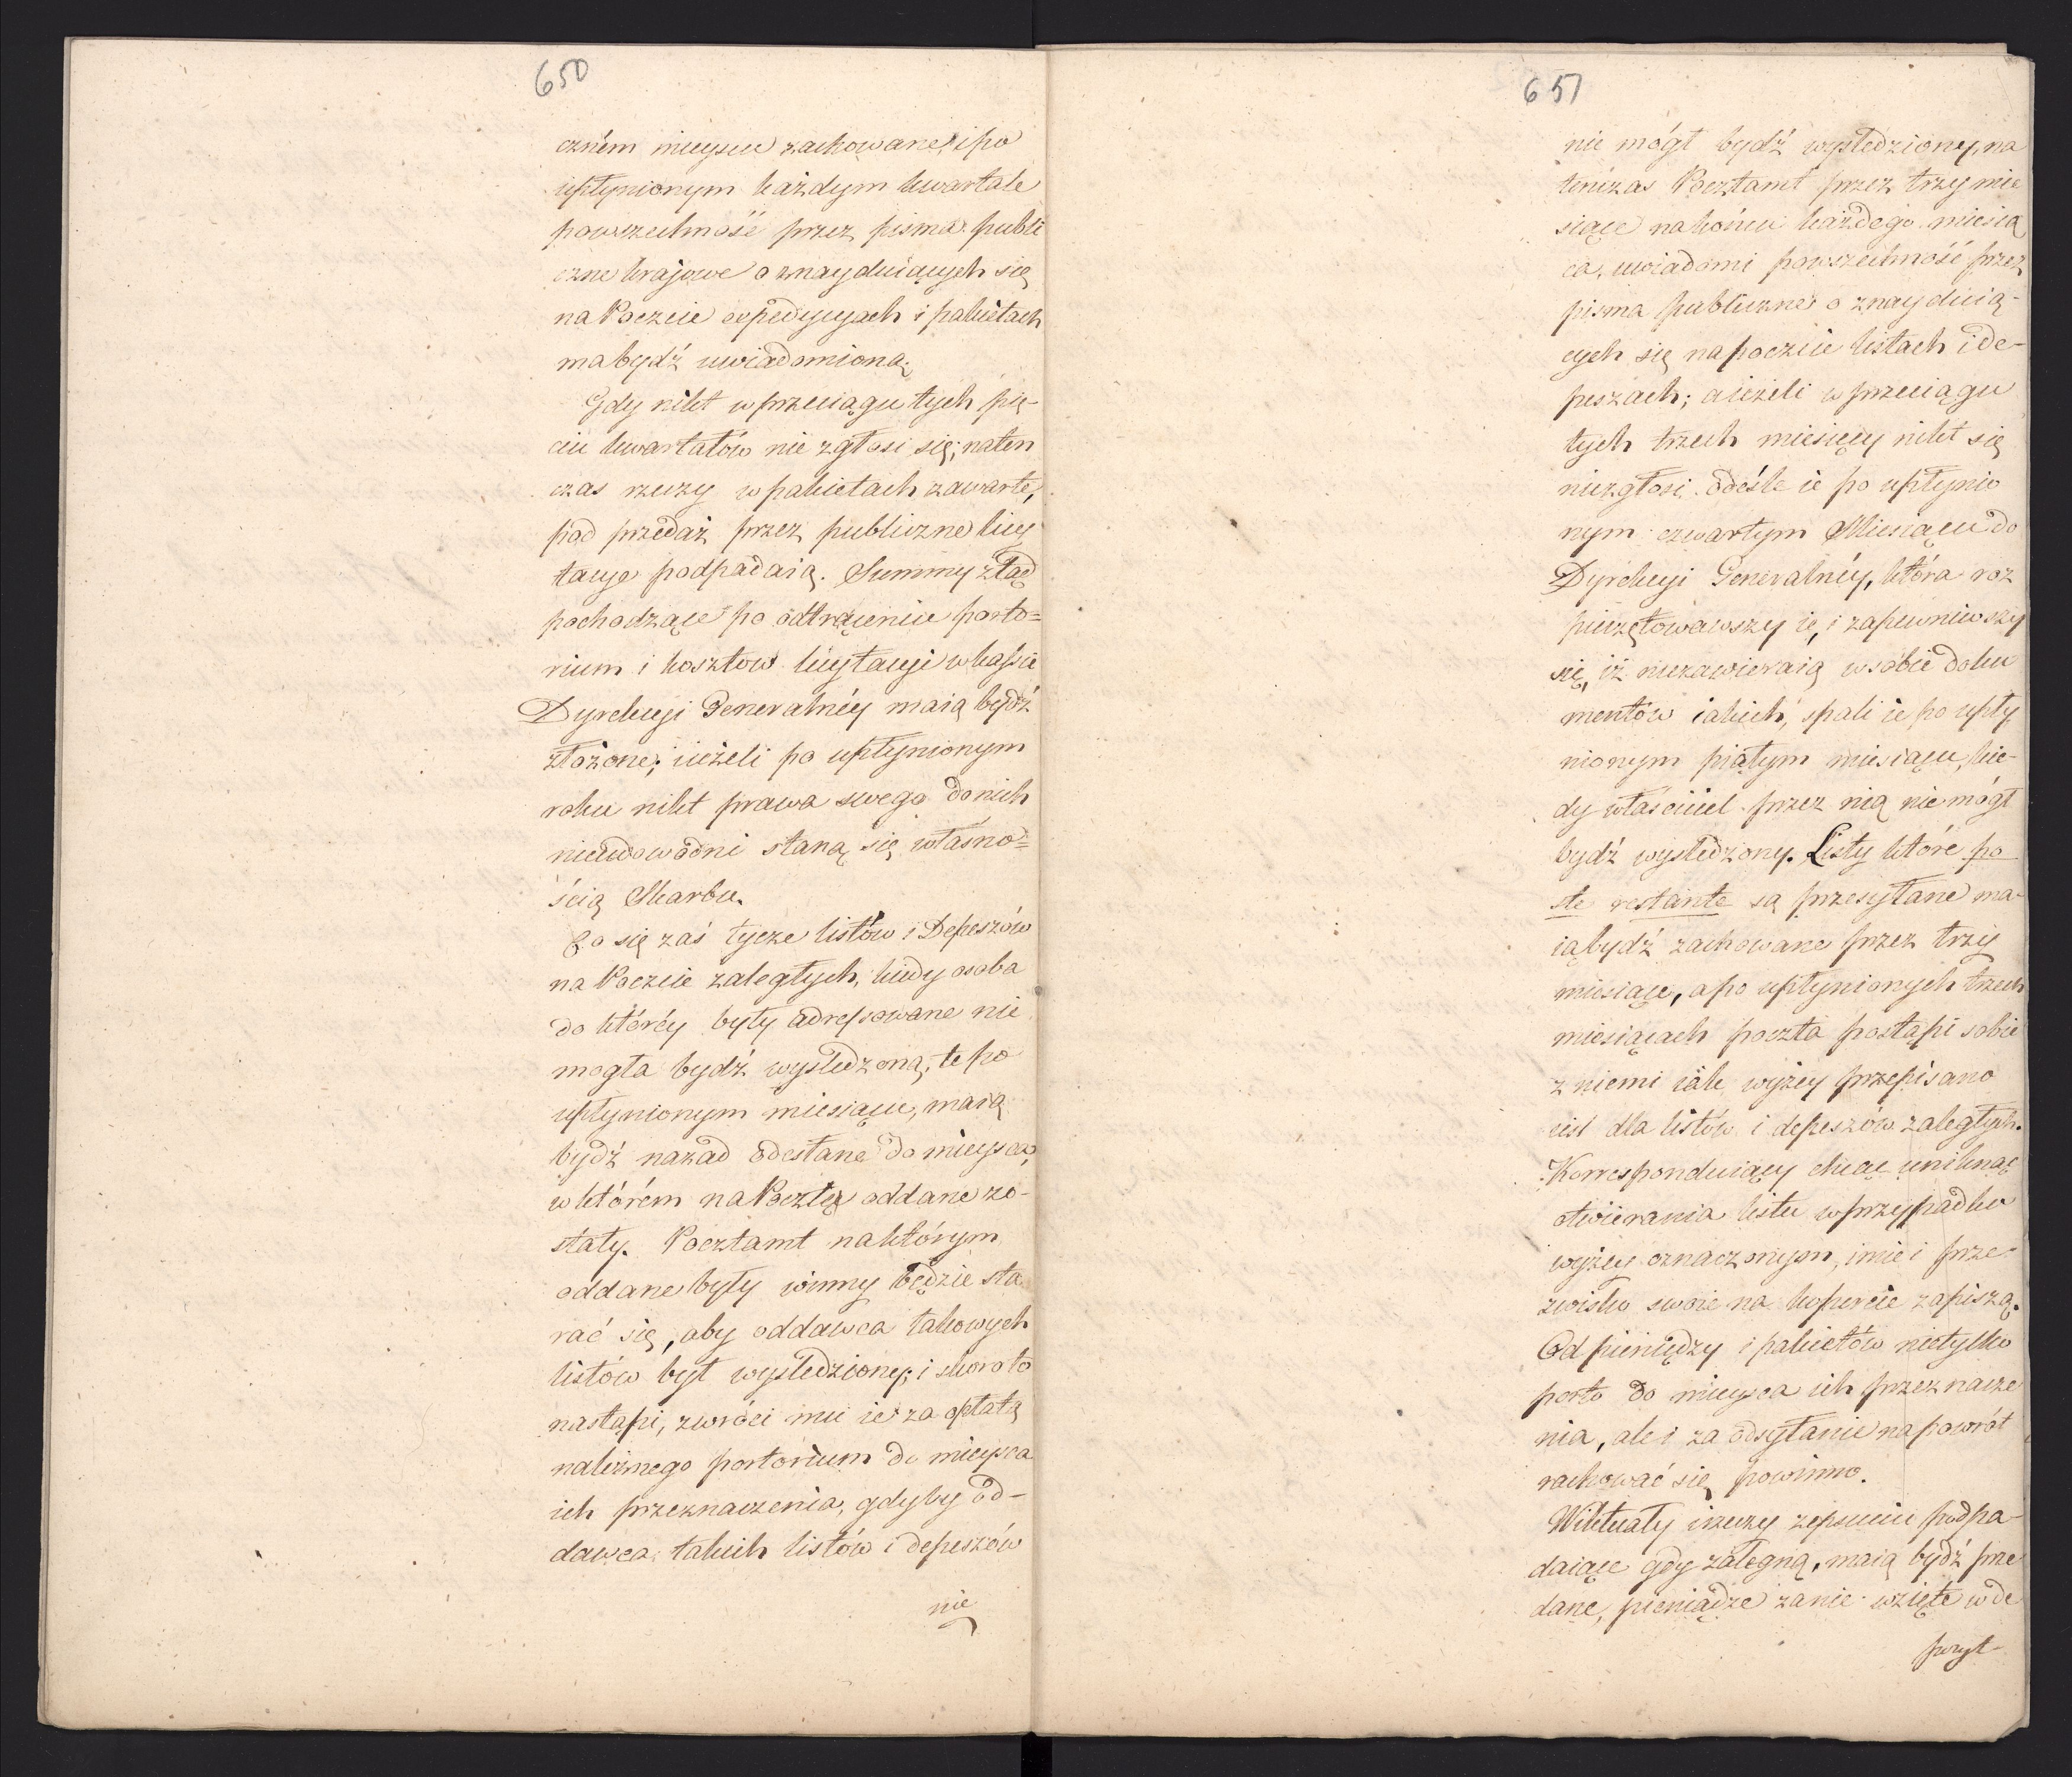 650
cznem mieyscu zachowane, i po
upłynionym każdym kwartale
powszechność przez pisma publi
czne krajowe o znayduiących się
na Poczcie expedycyach i pakietach
ma bydź uwiadomioną.
Gdy nikt w przeciągu tych pię-
ciu kwartałów nie zgłosi się; naten
czas rzeczy w pakietach zawarte,
pod przedaż przez publiczne licy
tacye podpadaią. Summy ztąd
pochodzące po odtrąceniu porto=
rium i kosztow licytacyi w kassie
Dyrekcyi Generalnéy maią bydź
złożone; ieżeli po upłynionym
roku nikt prawa swego do nich
nieudowodni staną się własno=
ścią Skarbu.
Co się zaś tycze listów i Depeszów
na Poczcie zaległych, kiedy osoba
do któréy były adressowane nie
mogła bydź wysledzoną, te po
upłynionym miesiącu, maią
bydź nazad odesłane do mieysca,
w którém na Pocztę oddane zo-
stały. Pocztamt na którym
oddane były winny będzie sta
rać się, aby oddawca takowych
listów był wysledziony; i skoro to
nastąpi, zwróci mu ie za opłatą
należnego portorium do mieysca
ich przeznaczenia, gdyby od-
dawca takich listów i depeszów
nie
651
nie mógł bydź wyśledziony, na
tenczas Pocztamt przez trzy mie
siące na końcu każdego miesią
ca, uwiadomi powszechność przez
pisma publiczne o znayduią-
cych się na poczcie listach i de-
peszach; a ieżeli w przeciągu
tych trzech miesięcy nikt się
niezgłosi odeśle ie po upłynio
nym czwartym Miesiącu do
Dyrekcyi Generalnéy, która roz
pieczętowawszy ie, i zapewniwszy
się, iż niezawieraią w sobie doku
mentów iakich, spali ie po upły
nionym piątym miesiącu, kie-
dy właściciel przez nią nie mógł
bydź wysledzony. Listy które po
ste restante są przesyłane ma-
ią bydź zachowane przez trzy
miesiące, a po upłynionych trzech
miesiącach poczta postąpi sobie
z niemi iak wyżey przepisano
iest dla listów i depeszów zaległych.
Korresponduiący chcąc uniknąć
otwierania listu w przypadku
wyżey oznaczonym, imie i prze-
zwisko swoie na kopercie zapiszą.
Od pieniędzy i pakietów nietylko
porto do mieysca ich przeznacze
nia, ale i za odsyłanie na powrót
rachować się powinno.
Wiktuały i rzeczy zepsuciu podpa-
daiące gdy zalegną, maią bydź prze
dane, pieniądze za nie wzięte w de
pozyt-